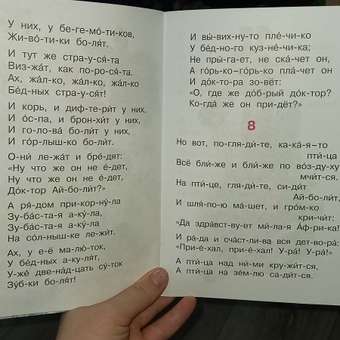 У них, у бе-ге-мо́-ти-ков,
Жи-во́-ти-ки бо-ля́т.
И тут же стра-у-ся́-та
Виз-жа́т, как по-ро-ся́-та.
Ах, жа́л-ко, жа́л-ко, жа́л-ко
Бе́д-ных стра-у-ся́т!
И корь, и диф-те-ри́т у них,
И о́с-па, и брон-хи́т у них,
И го-ло-ва́ бо-ли́т у них,
И го́р-лыш-ко бо-ли́т.
О-ни́ ле-жа́т и бре́-дят:
«Ну что же он не е́-дет,
Ну что же он не е́-дет,
До́к-тор Ай-бо-ли́т?»
А ря́-дом при-кор-ну́-ла
Зу-ба́с-та-я а-ку́-ла,
Зу-ба́с-та-я а-ку́-ла
На со́л-ныш-ке ле-жи́т.
Ах, у е-ё ма-лю́-ток,
У бе́д-ных а-ку-ля́т,
У-же́ две-на́д-цать су́-ток
Зу́б-ки бо-ля́т!
И вы́-вих-ну-то пле́-чи-ко
У бе́д-но-го куз-не́-чи-ка;
Не пры́-га-ет, не ска́-чет он,
А го́рь-ко-го́рь-ко пла́-чет он
И до́к-то-ра зо-вёт:
«О, где же до́б-рый до́к-тор?
Ко-гда́ же он при-дёт?»
8
Но вот, по-гля-ди́-те, ка-ка́-я-то
пти́-ца
Всё бли́-же и бли́-же по во́з-ду-ху
мчи́т-ся.
На пти́-це, гля-ди́-те, си-ди́т
Ай-бо-ли́т,
И шля́-по-ю ма́-шет, и гро́м-ко
кри-чи́т:
«Да здра́вст-ву-ет ми́-ла-я А́ф-ри-ка!»
И ра́-да и сча́ст-ли-ва вся дет-во-ра́:
«При-е́-хал, при-е́-хал! У-ра́! У-ра́!»
А пти́-ца над ни́-ми кру́-жи́т-ся,
А пти́-ца на зе́м-лю са-ди́т-ся.